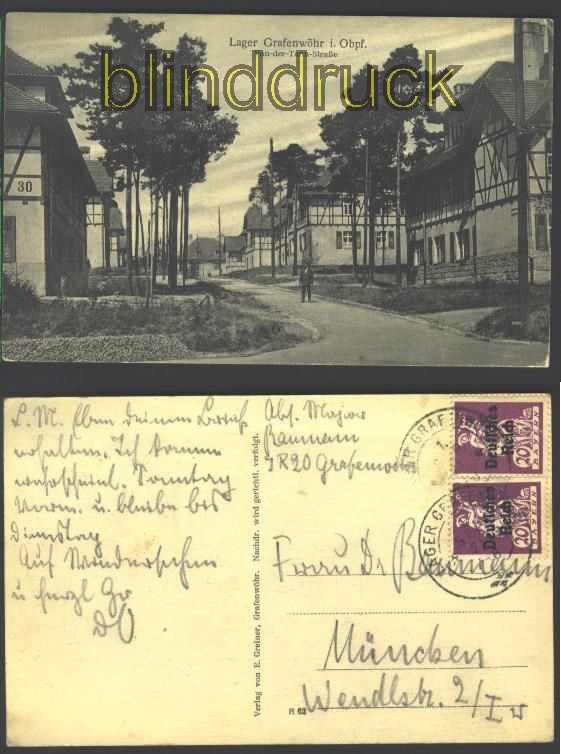 Lager Grafenwöhr i. Obpf.
Von-der-Tann-Straße
blinddruck
30
L. M. Eben deinen Besuch
erhalten. Ich komme
wahrscheinl. Sonntag
Vorm. u. bleibe bis
Dienstag
Auf Wiedersehen
u herzl Gr
Abs. Major
Baumann
IR20 Grafenwöhr
Frau Dr Baumann
München
Wendlstr. 2/I r
Verlag von E. Greiner, Grafenwöhr. Nachdr. wird gerichtl. verfolgt.
R 62
LAGER GRAFENWÖHR
Deutsches
Reich
20 BAYERN 20
Deutsches
Reich
20 BAYERN 20